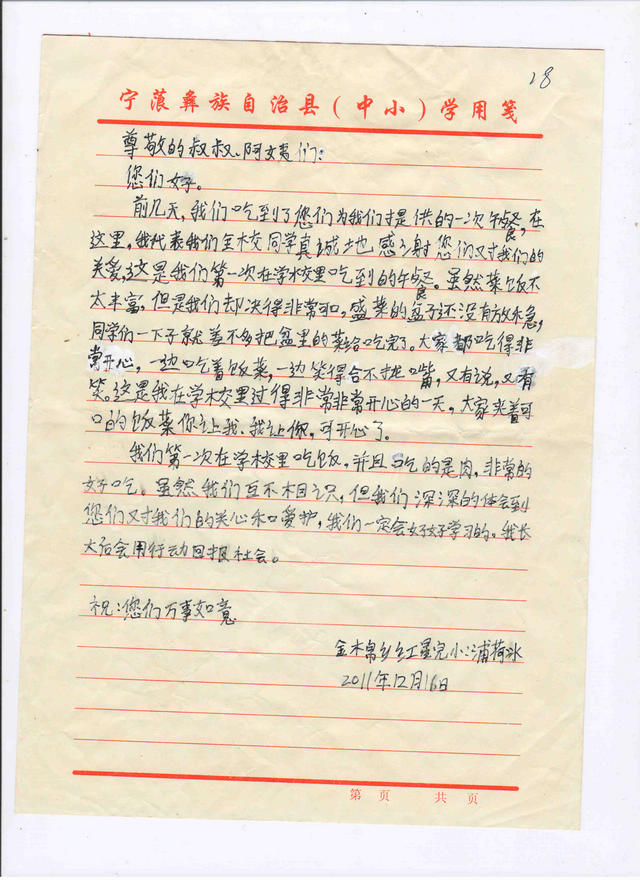 18
宁蒗彝族自治县(中小)学用笺
尊敬的叔叔、阿姨们:
您们好。
前几天,我们吃到了您们为我们提供的一次午餐,在
这里,我代表我们全校同学真诚地感谢您们对我们的
关爱,这是我们第一次在学校里吃到的午餐。虽然菜饭不
太丰富,但是我们却决得非常可口,盛菜的盆子还没有放水急,
同学们一下子就差不多把盆里的菜给吃完了。大家都吃得非
常开心,一边吃着饭菜,一边笑得合不拢嘴,又有说,又有
笑。这是我在学校里过得非常非常开心的一天,大家夹着可
口的饭菜你让我、我让你,可开心了。
我们第一次在学校里吃饭,并且吃的是肉,非常的
好吃。虽然我们互不相识,但我们深深的体会到
您们对我们的关心和爱护,我们一定会好好学习的。我长
大后会用行动回报社会。
祝:您们万事如意
金木帛乡红星完小:浦荷冰
2011年12月16日
第 页 共 页